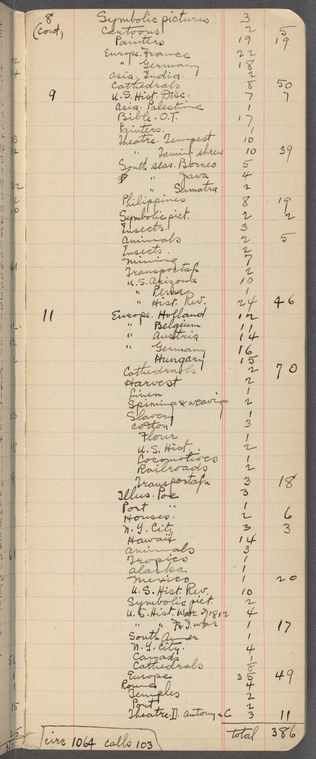 8 Symbolic pictures 3
(cont, Cartoons 2 5
Painters 19 19
Europe. France 22
" Germany 18
Asia. India. 2
Cathedrals 8 50
9 U.S. Hist. Disc. 7 7
Asia. Palestine 1
Bible. O.T. 17
Painters. 1
Theatre. Tempest 10
" Taming shrew 10 39
South Seas. Borneo 5
" Java 4
" Sumatra 2
Philippines 8 19
Symbolic pict. 2 2
Insects. 3
Animals 2 5
Insects. 2
Mining 7
Transportatn 2
U.S. Arizona 10
" Penna 1
" Hist. Rev. 24 46
11 Europe. Holland 12
" Belgium 11
" Austria 14
" Germany 16
Hungary 15
Cathedrals 2 70
Harvest 2
Linen 1
Spinning & weaving 2
Slavery 1
Cotton 3
Flour 1
U.S. Hist. 2
Locomotives 1
Railroads 2
Transportatn 3 18
Illus. Poe 3
Port " 1
Houses. 2 6
N.Y. City 3 3
Hawaii 14
Animals 3
Tropics 1
Alaska 1
Mexico 1 20
U.S. Hist. Rev. 10
Symbolic pict 2
U.S. Hist. War of 1812 4
" " F. & I. war 1 17
South Amer 1
N.Y. City. 4
Canada 1
Cathedrals
Europe 35 49
Rome 4
Temples 2
Port 2
Theatre. Antony & C 3 11
total 386
circ 1064 calls 103